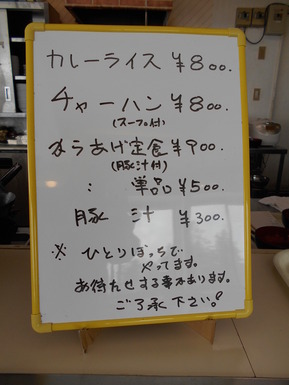 カレーライス ¥800.
チャーハン ¥800.
(スープ付)
からあげ定食 ¥900.
(豚汁付)
: 単品 ¥500.
豚 汁 ¥300.
※ ひとりぼっちで
やってます。
お待たせする事があります。
ご了承下さい。!